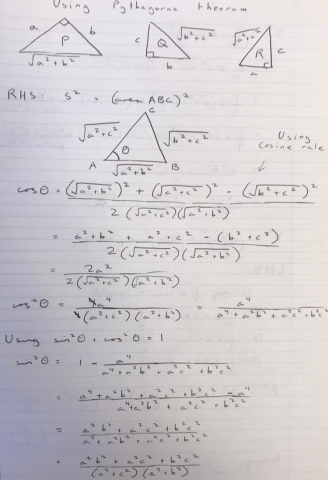 Using Pythagoras theorem
a b c √b²+c² √a²+c² c
P Q R
√a²+b² b a
RHS: S² = (area ABC)²
C
√a²+c² √b²+c²
θ
A √a²+b² B
Using cosine rule
cosθ = (√a²+b²)² + (√a²+c²)² - (√b²+c²)² / 2(√a²+c²)(√a²+b²)
= a²+b² + a²+c² - (b²+c²) / 2(√a²+c²)(√a²+b²)
= 2a² / 2(√a²+c²)(√a²+b²)
cos²θ = 4a⁴ / 4(a²+c²)(a²+b²) = a⁴ / a⁴+a²b²+a²c²+b²c²
Using sin²θ + cos²θ = 1
sin²θ = 1 - a⁴ / a⁴+a²b²+a²c²+b²c²
= a⁴+a²b²+a²c²+b²c²-a⁴ / a⁴+a²b²+a²c²+b²c²
= a²b²+a²c²+b²c² / a⁴+a²b²+a²c²+b²c²
= a²b²+a²c²+b²c² / (a²+c²)(a²+b²)